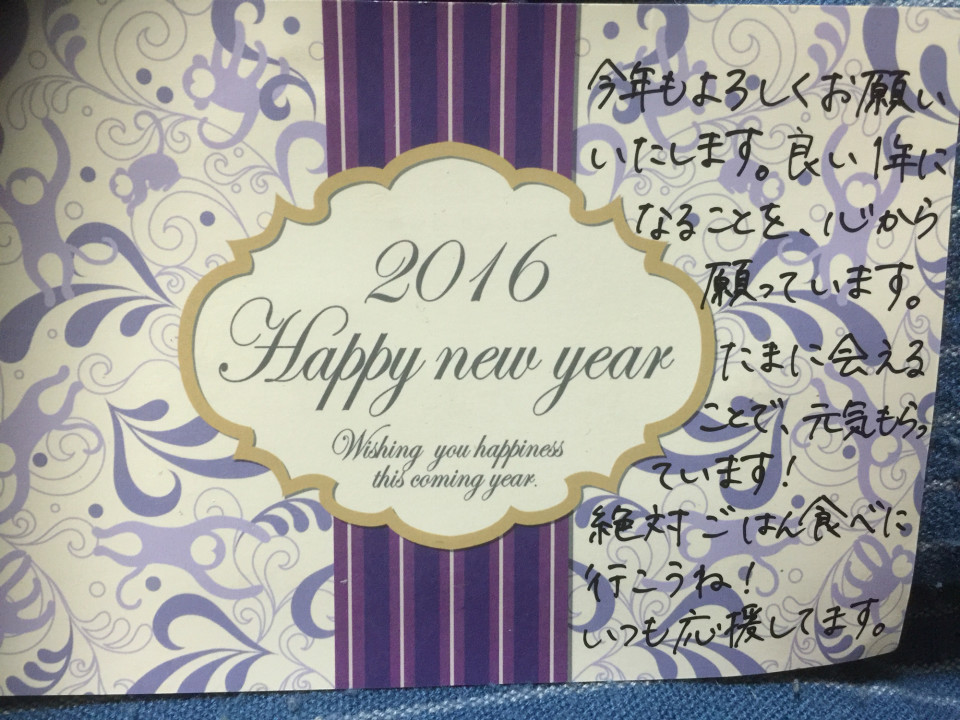 2016
Happy new year
Wishing you happiness
this coming year.
今年もよろしくお願い
いたします。良い1年に
なることを、心から
願っています。
たまに会える
ことで、元気もらっ
ています!
絶対ごはん食べに
行こうね!
いつも応援してます。